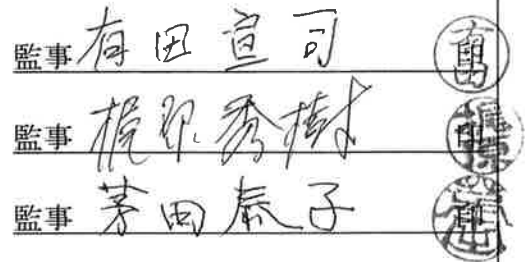 監事 有田宣司
監事 梶原秀樹
監事 茅田泰子